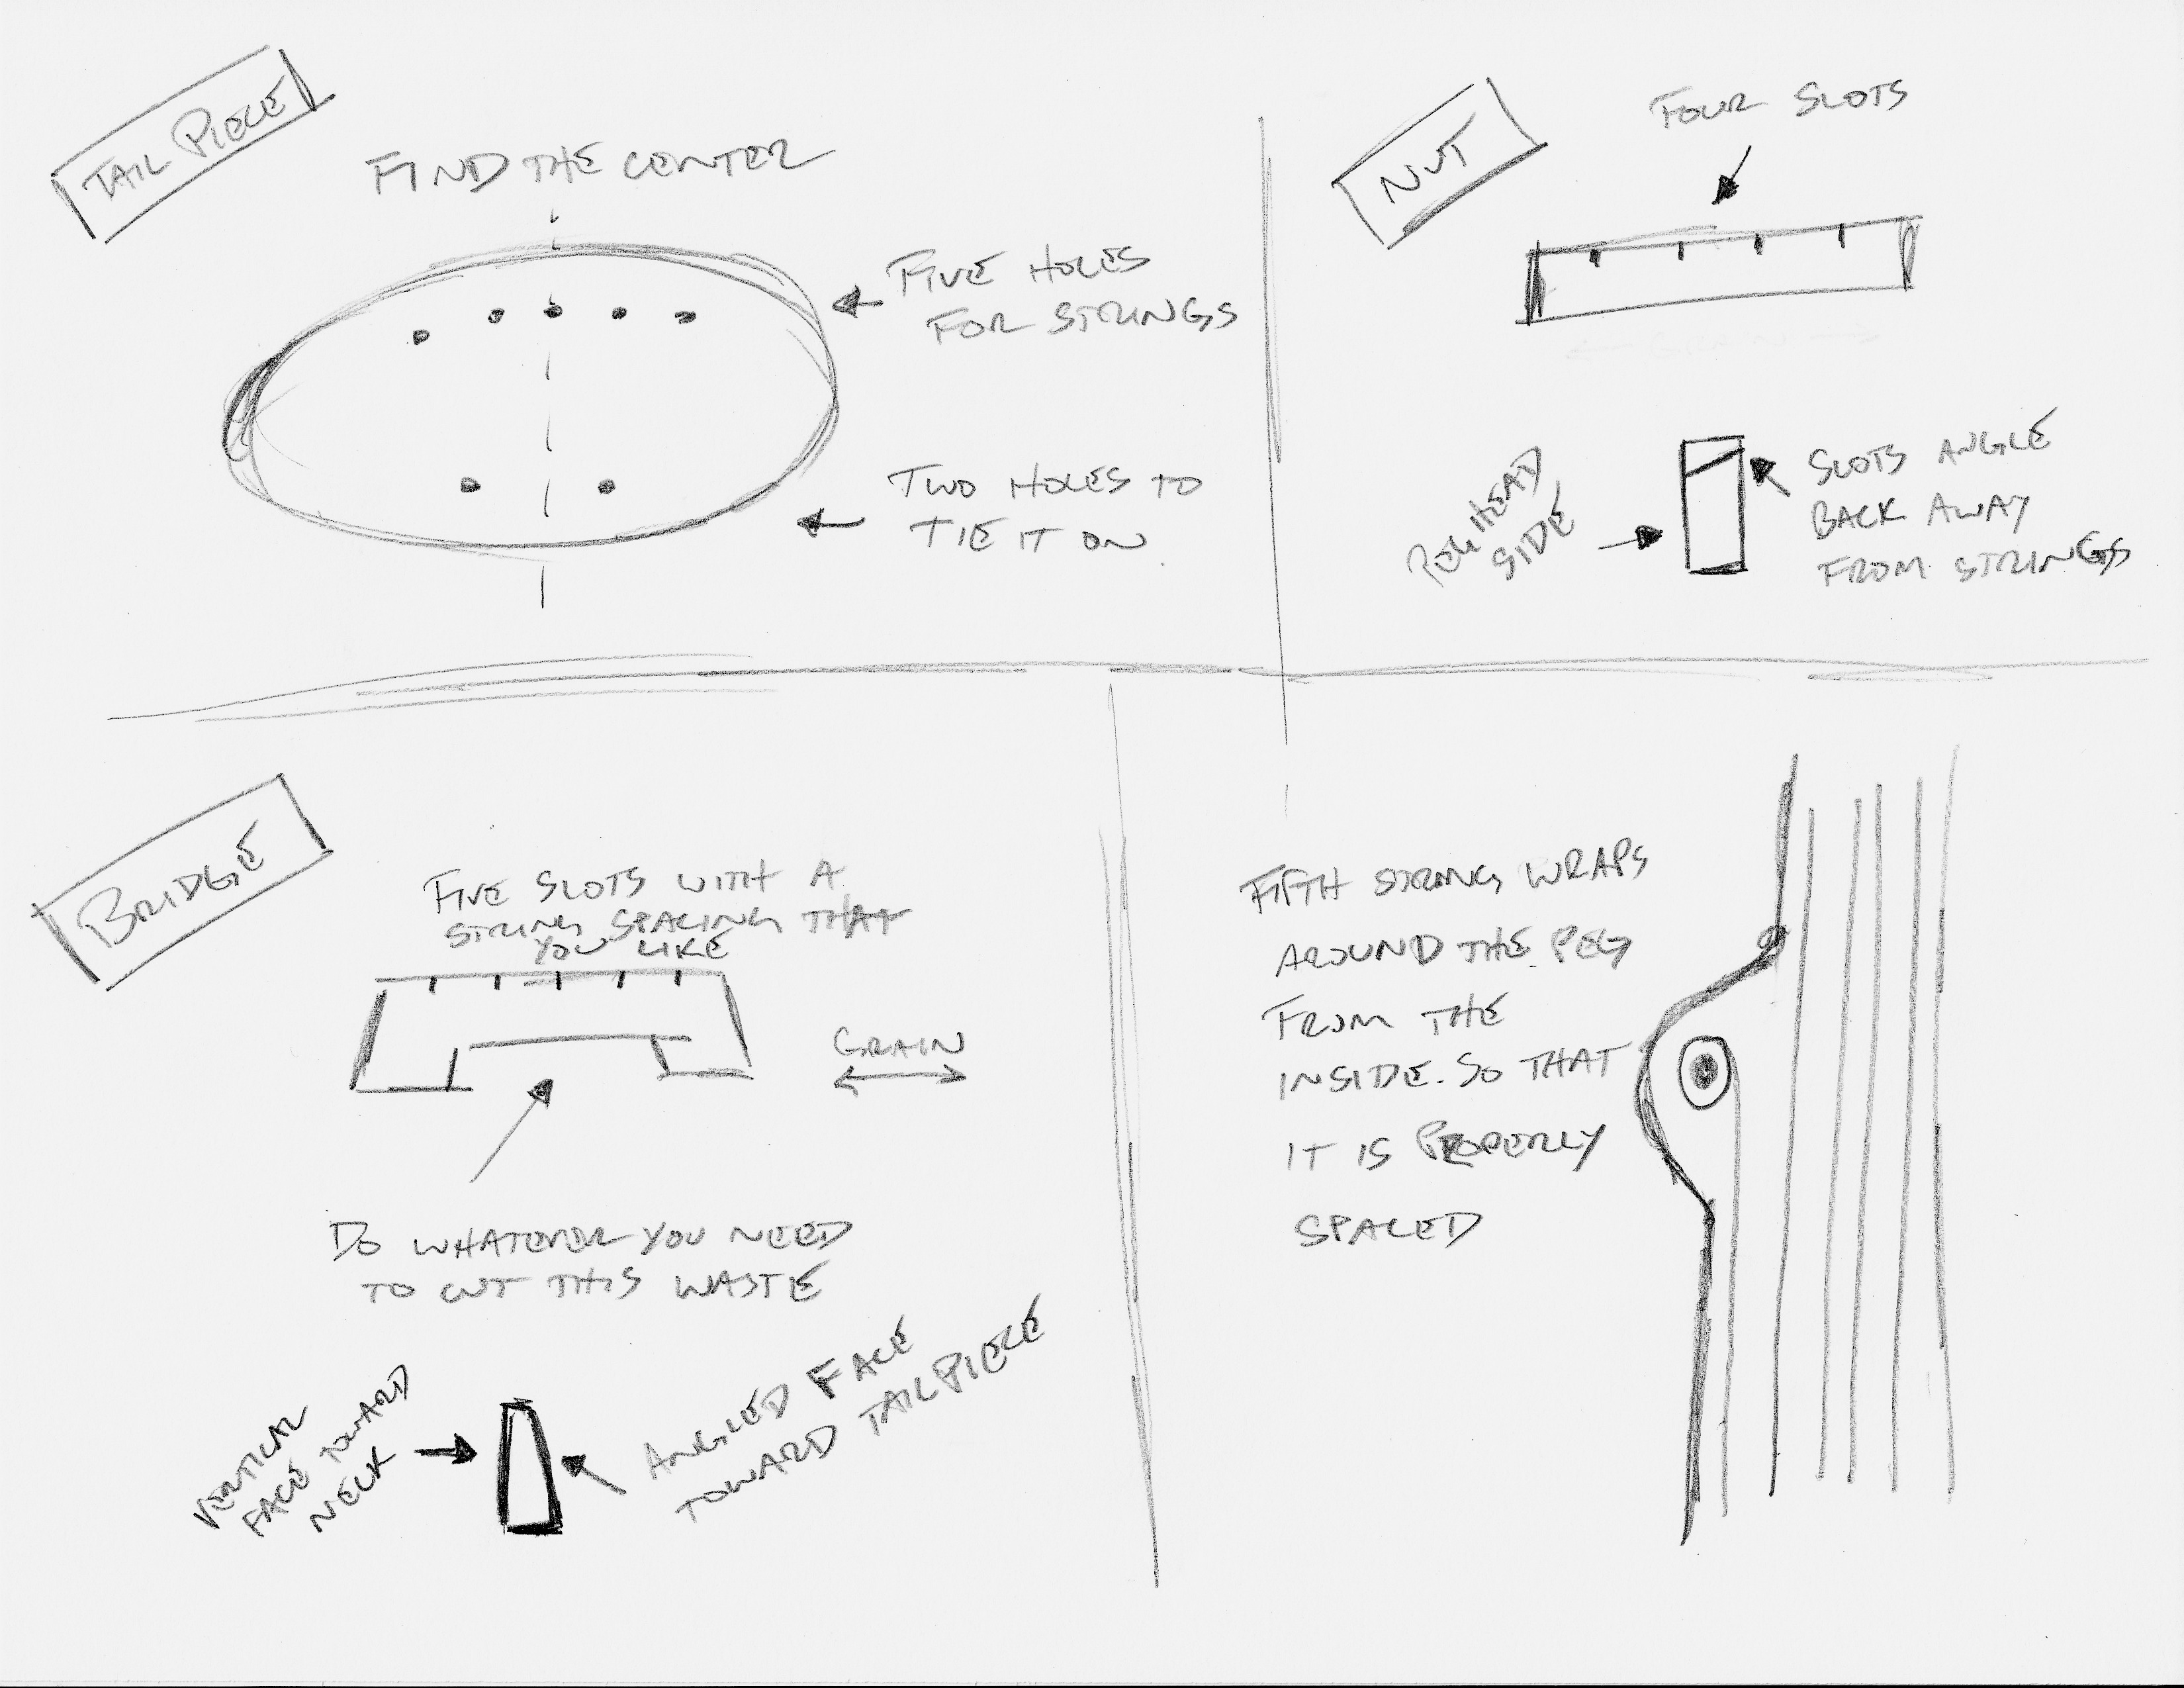 TAIL PIECE
FIND THE CENTER
FIVE HOLES
FOR STRINGS
TWO HOLES TO
TIE IT ON
NUT
FOUR SLOTS
PEG HEAD
SIDE
SLOTS ANGLE
BACK AWAY
FROM STRINGS
BRIDGE
FIVE SLOTS WITH A
STRING SPACING THAT
YOU LIKE
GRAIN
DO WHATEVER YOU NEED
TO CUT THIS WASTE
VERTICAL
FACE TOWARD
NECK
ANGLED FACE
TOWARD TAILPIECE
FIFTH STRING WRAPS
AROUND THE PEG
FROM THE
INSIDE. SO THAT
IT IS PROPERLY
SPACED